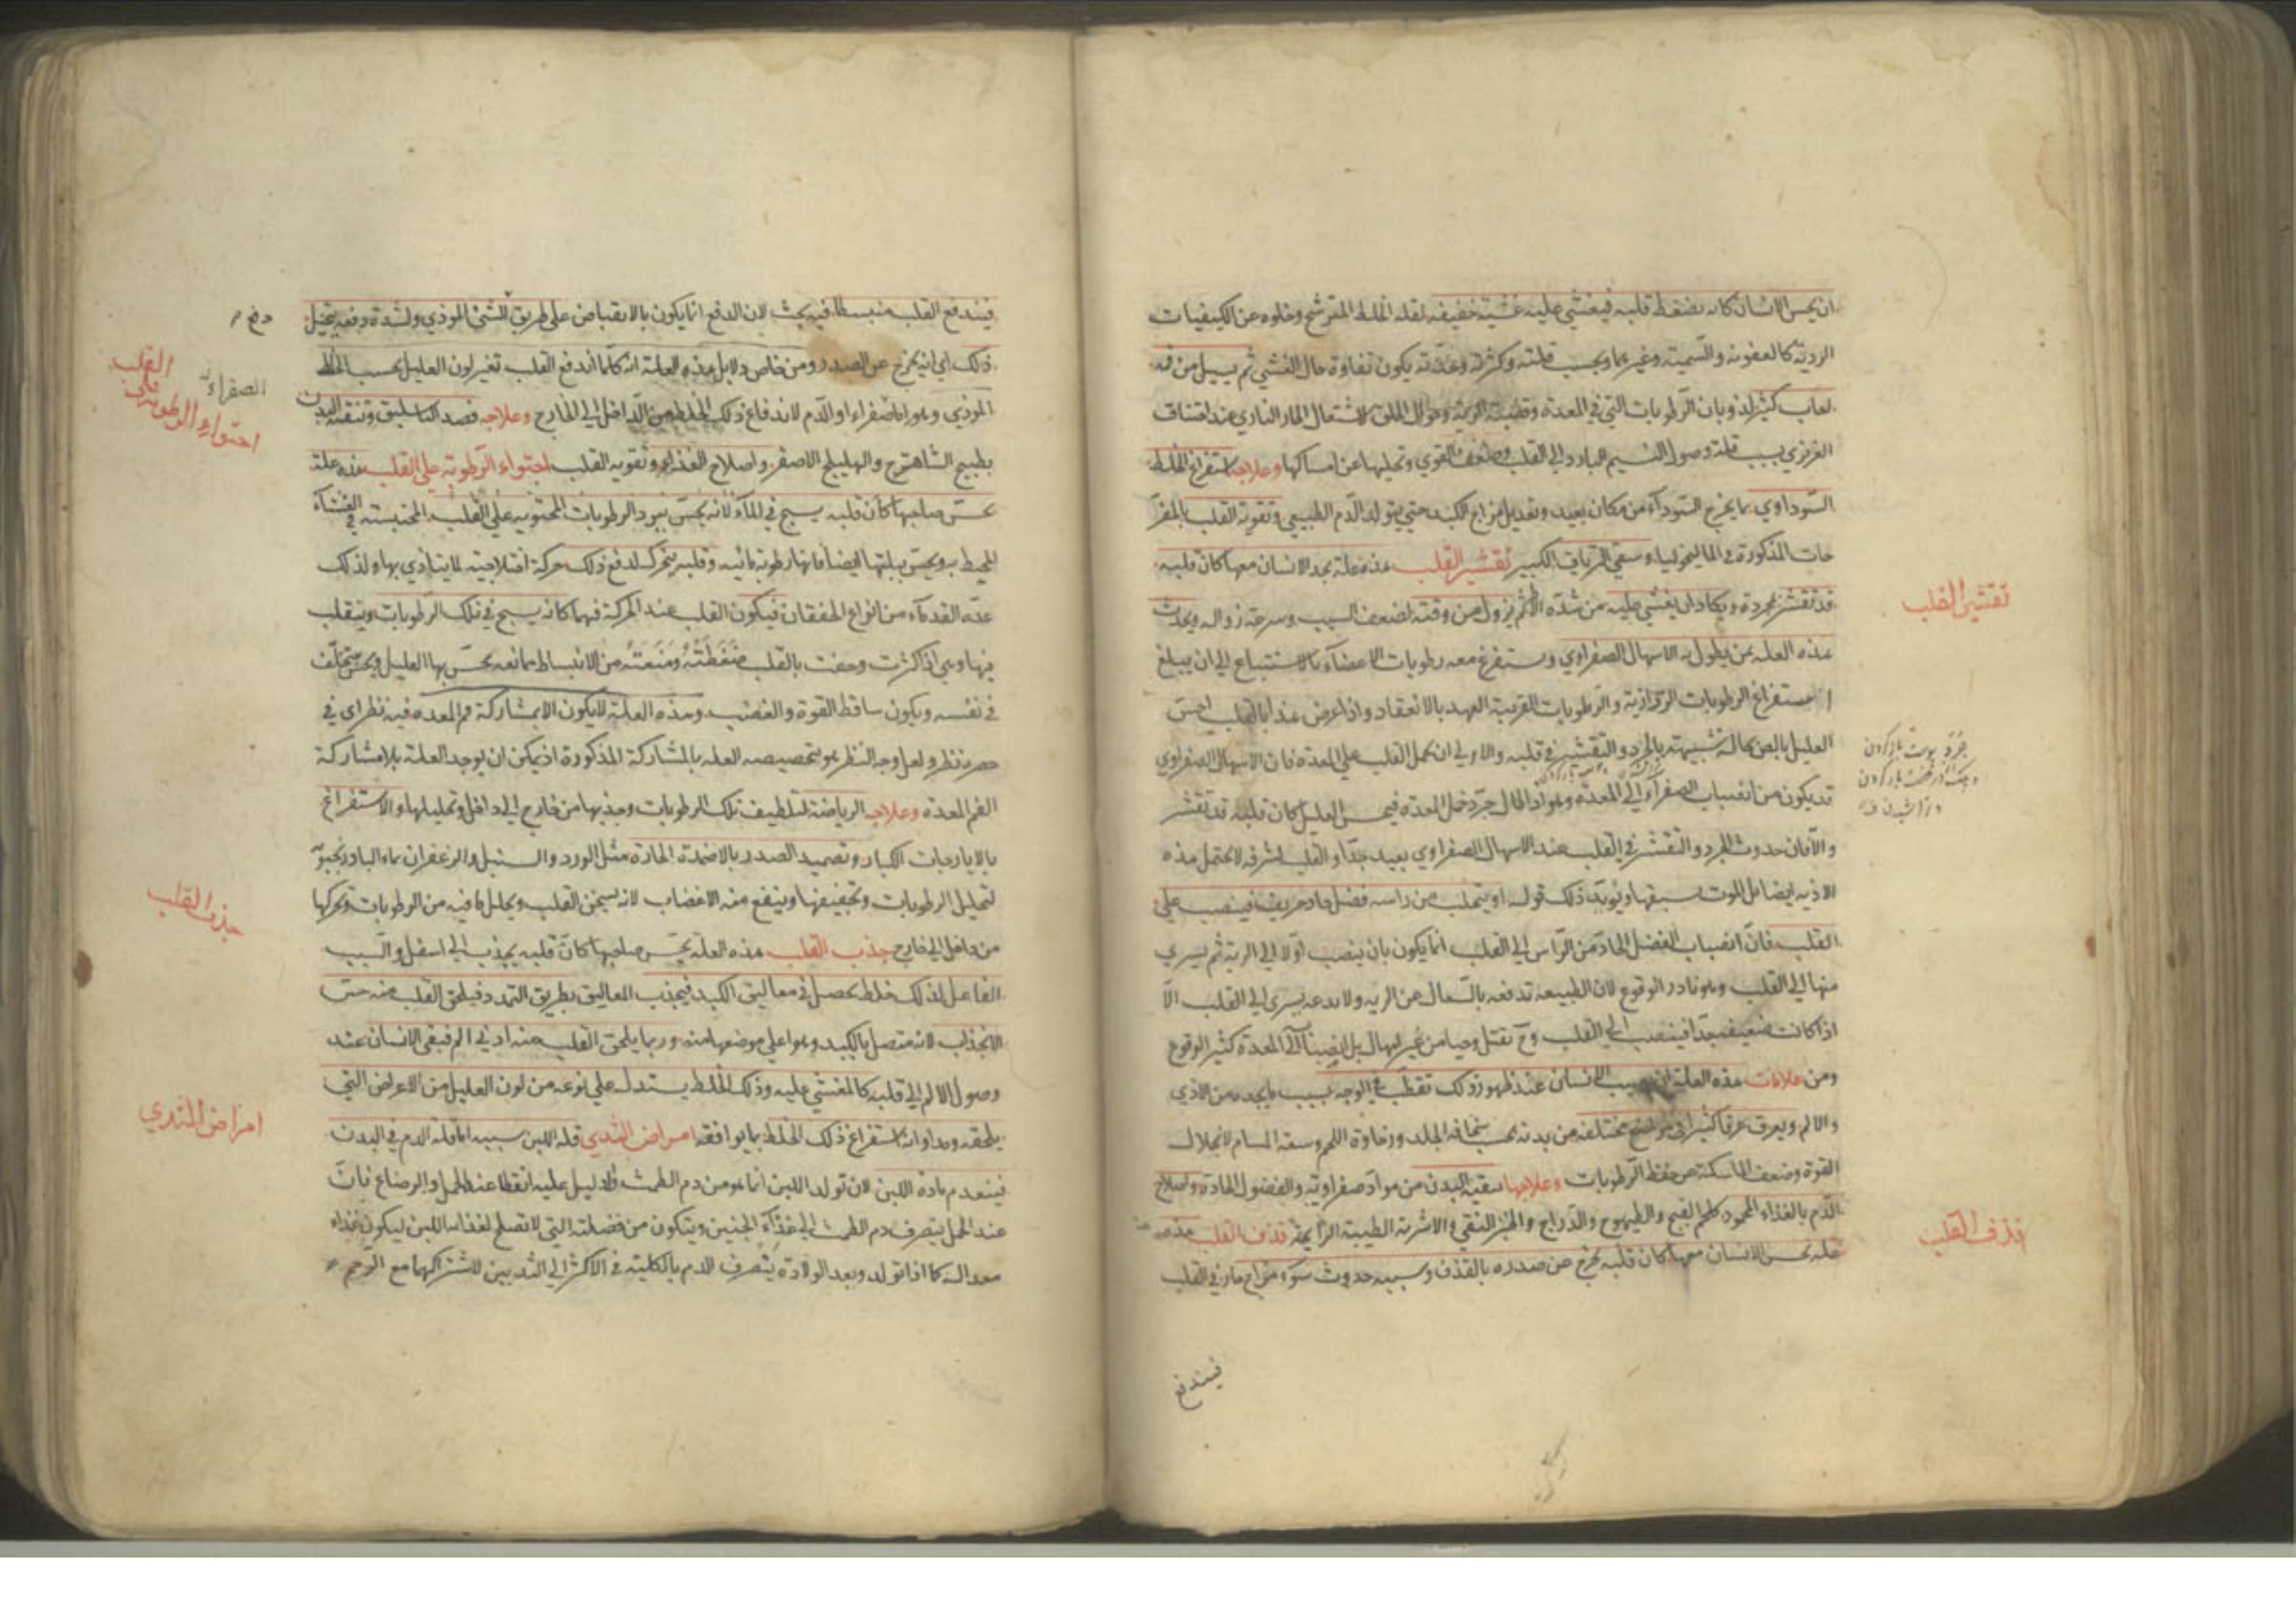 ان يحس الانسان كانه يضغط قلبه فيغشى عليه غشية خفيفه لقلة الخلط المترشح وخلوه عن الكيفيات
الردية كالعفونه والسمية وغيرهما وبحسب قلته وكثرته يكون تفاوة حال الغشي ثم يسيل من فمه
لعاب كثير لذوبان الرطوبات التي في المعدة الحار الناري عند اختناق
الغريزي بسبب قلة وصول النسيم البارد الى القلب وضعف القوي وتخليها عن امساكها وعلاجه استفراغ الخلط
السوداوي بما يخرج السوداء من مكان بعيد وتعديل مزاج الكبد حتى يتولد الدم الطبيعي وتقوية القلب بالمفر
حات المذكورة في الماليخوليا وسقي الترياق الكبير تقشير القلب هذه علة يجد الانسان معها كان قلبه
قد تقشر بجردة ويكاد ان يغشى عليه من شدة الالم ثم يزول من وقته لضعف السبب وسرعة زواله ويحدث
هذه العلة بمن يطول به الاسهال الصفراوي ويستفرغ معه رطوبات الاعضاء بالاستتباع الى ان يبلغ
استفراغ الرطوبات الرذاذية والرطوبات القريبة العهد بالانعقاد واذا عرض هذا بالقلب احس
العليل بالمن كحالة شبيهة بالجرد والتقشير في قلبه والاولى ان يحمل القلب على المعدة فان الاسهال الصفراوي
قد يكون من انصباب الصفراء الى المعدة وهو اذا طال جرد خمل المعدة فيحس العليل كان قلبه قد تقشر
والا فان حدوث الجرد والتقشر في القلب عند الاسهال الصفراوي بعيد جدا والقلب لشرفه لا يحتمل هذه
الاذيه ايضا بل الموت يسبقها ويؤيد ذلك قوله او يتحلب من راسه فضل حاد حريف فينصب على
القلب فان انصباب الفضل الحاد من الراس الى القلب انما يكون بان ينصب اولا الى الرية ثم يسري
منها الى القلب وهو نادر الوقوع لان الطبيعه تدفعه بالسعال عن الريه ولا يدعه يسري الى القلب الا
اذا كانت ضعيفة جدا فينصب الى القلب وح يقتل وحيا من غير امهال بل انصبابه الى المعدة كثير الوقوع
ومن علامات هذه العلة ان يصيب الانسان عند ظهور ذلك تقطب في الوجه بسبب ما يجده من الاذي
والالم ويعرق عرقا كثيرا في مواضع مختلفة من بدنه بحسب سخافة الجلد ورخاوة اللحم وسعة المسام لانحلال
القوة وضعف الماسكة عن حفظ الرطوبات وعلاجها تنقية البدن من مواد صفراوية والفضول الحادة واصلاح
الدم بالغذاء المحمود كلحم القبج والطيهوج والدراج والخبز النقي والاشربة الطيبة الرايحة قذف القلب هذه
علة يحس الانسان معها كان قلبه يخرج من صدره بالقذف وسببه حدوث سوء مزاج حار في القلب
فيندفع
تقشير القلب
قذف القلب
فيندفع القلب منبسطا فيه بحث لان الدفع انما يكون بالانقباض على طريق للشئ الموذي ولشدة دفعه يتخيل
ذلك اي انه يخرج عن الصدر ومن خاص دلايل هذه العلة انه كلما اندفع القلب تغير لون العليل بحسب الخلط
الموذي وهو اما الصفراء او الدم لاندفاع ذلك الخلط من الداخل الى الخارج وعلاجه فصد الباسليق وتنقية البدن
بطبيخ الشاهترج والهليلج الاصفر واصلاح الغذاء وتقوية القلب احتواء الرطوبة على القلب هذه علة
يحس صاحبها كان قلبه يسبح في الماء لانه يحس ببرد الرطوبات المحتوية على القلب المحتبسة في الغشاء
المحيط به ويحس ببلتها ايضا فانها رطوبة مائيه وقلبه يتحرك لدفع ذلك حركة اختلاجية لما يتاذي بها ولذلك
عده القدماء من انواع الخفقان فيكون القلب عند الحركة فيها كانه يسبح في تلك الرطوبات ويتقلب
فيها وهي اذا كثرت وحفت بالقلب ضغطته ومنعته من الانبساط ممانعة يحس بها العليل ويحس بتخلف
في نفسه ويكون ساقط القوة والغضب وهذه العلة لا يكون الا بمشاركة فم المعده فيه نظر اي في
حصره نظر ولعل وجه النظر هو تخصيصه العله بالمشاركة المذكورة اذ يمكن ان يوجد العلة بلا مشاركة
الفم المعدة وعلاجه الرياضة لتلطيف تلك الرطوبات وجذبها من خارج الى داخل وتحليلها والاستفراغ
بالايارجات الكبار وتضميد الصدر بالاضمدة الحارة مثل الورد والسنبل والزعفران بماء البادرنجبويه
لتحليل الرطوبات وتجفيفها وينفع منه الاغضاب لانه يسخن القلب ويحلل ما فيه من الرطوبات وتحركها
من داخل الى خارج جذب القلب هذه العلة يحس صاحبها كان قلبه يجذب الى اسفل والسبب
الفاعل لذلك خلط يحصل في معاليق الكبد فيجذب المعاليق بطريق التمدد فيلحق القلب منه حس
الانجذاب لانه متصل بالكبد وهو اعلى موضعا منه وربما يلحق القلب منه ادنى الم فيبقى الانسان عند
وصول الالم الى قلبه كالمغشي عليه وذلك الخلط يستدل على نوعه من لون العليل من الاعراض التي
يلحقه ومداواته استفراغ ذلك الخلط بما يوافقه امراض الثدي قلة اللبن سببه اما قلة الدم في البدن
فينعدم مادة اللبن لان تولد اللبن انما هو من دم الطمث والدليل عليه انقطاعه عند الحمل والرضاع فان
عند الحمل يتصرف دم الطمث الى غذاء الجنين ويتكون من فضلته التي لا تصلح لغذائه اللبن ليكون غذاء
معدا له كما اذا تولد وبعد الولادة يتصرف الدم بالكلية في الاكثر الى الثديين لاشتراكهما مع الرحم
دفع
الصفراء
القلب
احتواء الرطوبة على
جذب القلب
امراض الثدي